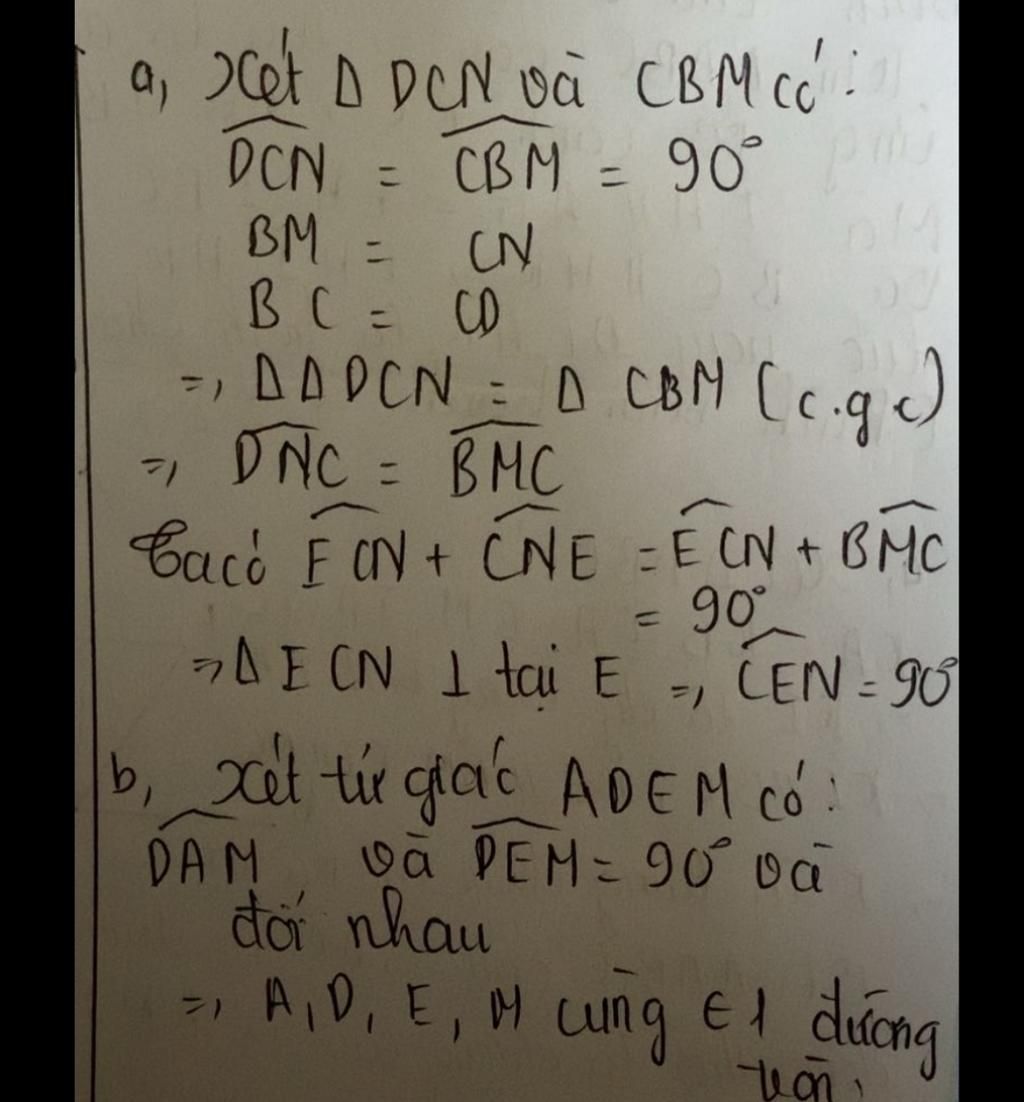 a, Xét Δ DCN và CBM có:
DCN = CBM = 90°
BM = CN
BC = CD
=> ΔΔ DCN = Δ CBM (c.g c)
=> DNC = BMC
Ta có ECN + CNE = ECN + BMC
= 90°
=> Δ ECN ⊥ tại E => CEN = 90°
b, Xét tứ giác ADEM có:
DAM và DEM = 90° và
đối nhau
=> A, D, E, M cùng ∈ 1 đường
tròn.